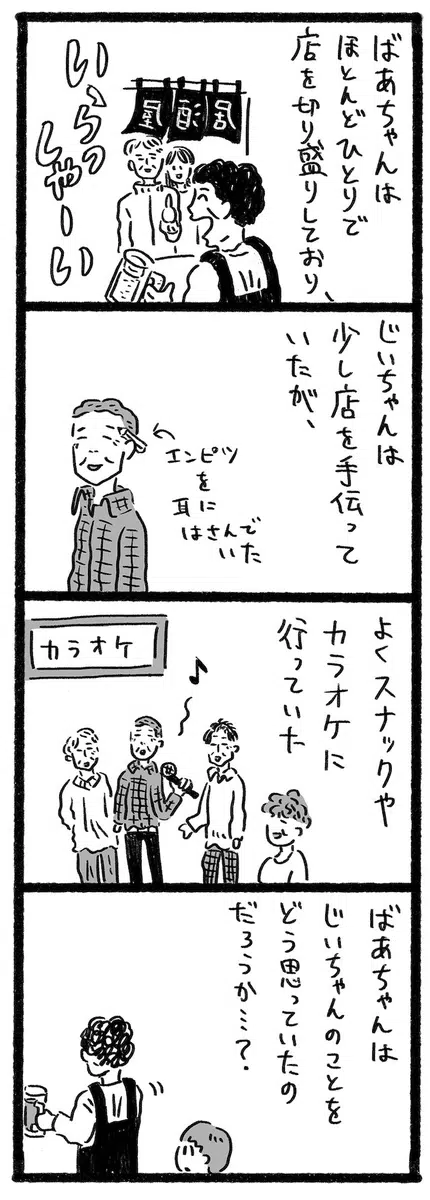 ばあちゃんは
ほとんどひとりで
店を切り盛りしており、
いらっ
しゃーい
じいちゃんは
少し店を手伝って
いたが、
エンピツ
を
耳に
はさんで
いた
よくスナックや
カラオケに
行っていた
カラオケ
ばあちゃんは
じいちゃんのことを
どう思っていたの
だろうか…？